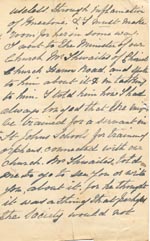 through Inflamation
of & I must make
room for her in some way
I went to the Minister of our
Church Mr Thwaites of Christ
Church Road and spoke
to him about it & in talking
to him I told him how I had
always prayed that she might
be trained for a servant in
St Johns School for training
orphans connected with our
Church. Mr Thwaites told
me to go to see you or write
you, about it, for he thought
it was a thing that perhaps
the Society would not